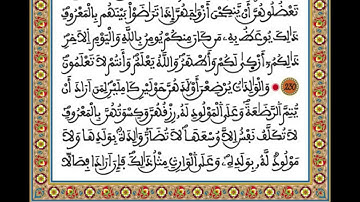 تَعْضُلُوهُنَّ أَنْ يَنكِحْنَ أَزْوَٰجَهُنَّ إِذَا تَرَٰضَوْاْ بَيْنَهُم بِالْمَعْرُوفِ
ذَٰلِكَ يُوعَظُ بِهِۦ مَن كَانَ مِنكُمْ يُومِنُ بِاللَّهِ وَالْيَوْمِ الَاخِرِ
ذَٰلِكُمُۥ أَزْكَىٰ لَكُمْ وَأَطْهَرُ وَاللَّهُ يَعْلَمُ وَأَنتُمْ لَا تَعْلَمُونَ
230 وَالْوَٰلِدَٰتُ يُرْضِعْنَ أَوْلَٰدَهُنَّ حَوْلَيْنِ كَامِلَيْنِ لِمَنَ اَرَادَ أَنْ
يُّتِمَّ الرَّضَٰعَةَ وَعَلَى الْمَوْلُودِ لَهُۥ رِزْقُهُنَّ وَكِسْوَتُهُنَّ بِالْمَعْرُوفِ
لَا تُكَلَّفُ نَفْسٌ اِلَّا وُسْعَهَا لَا تُضَآرَّ وَٰلِدَةٌۢ بِوَلَدِهَا وَلَا
مَوْلُودٌ لَّهُۥ بِوَلَدِهِۦ وَعَلَى الْوَارِثِ مِثْلُ ذَٰلِكَ فَإِنَ اَرَادَا فِصَالًا